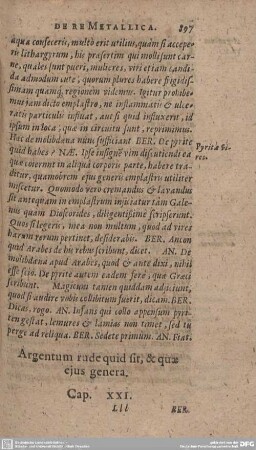 DE RE METALLICA. 897
aqua confeceris, multò erit utilius, quàm si accepe-
ris lithargyrum, his præsertim qui molli sunt car-
ne, quales sunt pueri, mulieres, viri etiam, candi-
da admodum cute, quorum plures habere frigidis-
simam quamq; regionem videmus. Igitur prohibe-
mus jam dicto emplastro, ne inflammatio & ulce-
ratis particulis insint, aut si quid influxerit, id
ipsum in loca, quæ in circuitu sunt, reprimimus.
Hæc de molibdæna nunc sufficiant BER. De pyrite
quid habes? NÆ. Ipse insignem vim discutiendi ea
quæ coierunt in aliqua corporis parte, habere tradi-
tur, quamobrem ejus generis emplastris utiliter
miscetur. Quomodo verò cremandus & lavandus
sit antequam in emplastrum injiciatur tam Gale-
nus quàm Dioscorides, diligentissimè scripserunt.
Quos si legeris, mea non multum, quod ad vires
harum rerum pertinet, desiderabis. BER. Ancon
quid Arabes de his rebus scribunt, dicet. AN. De
molibdæna apud Arabes, quod & ante dixi, nihil
esse scio. De pyrite autem eadem ferè, quæ Græci
scribunt. Magicum tamen quiddam adjiciunt,
quod si audire vobis collibitum fuerit, dicam. BER.
Dicas, rogo. AN. Infans qui collo appensum pyri-
ten gestat, lemures & lamias non timet, sed tu
perge ad reliqua. BER. Sedete primùm. AN. Fiat.
Pyritæ vi-
res.
Argentum rude quid sit, & quæ
ejus genera.
Cap. XXI.
Lll BER.